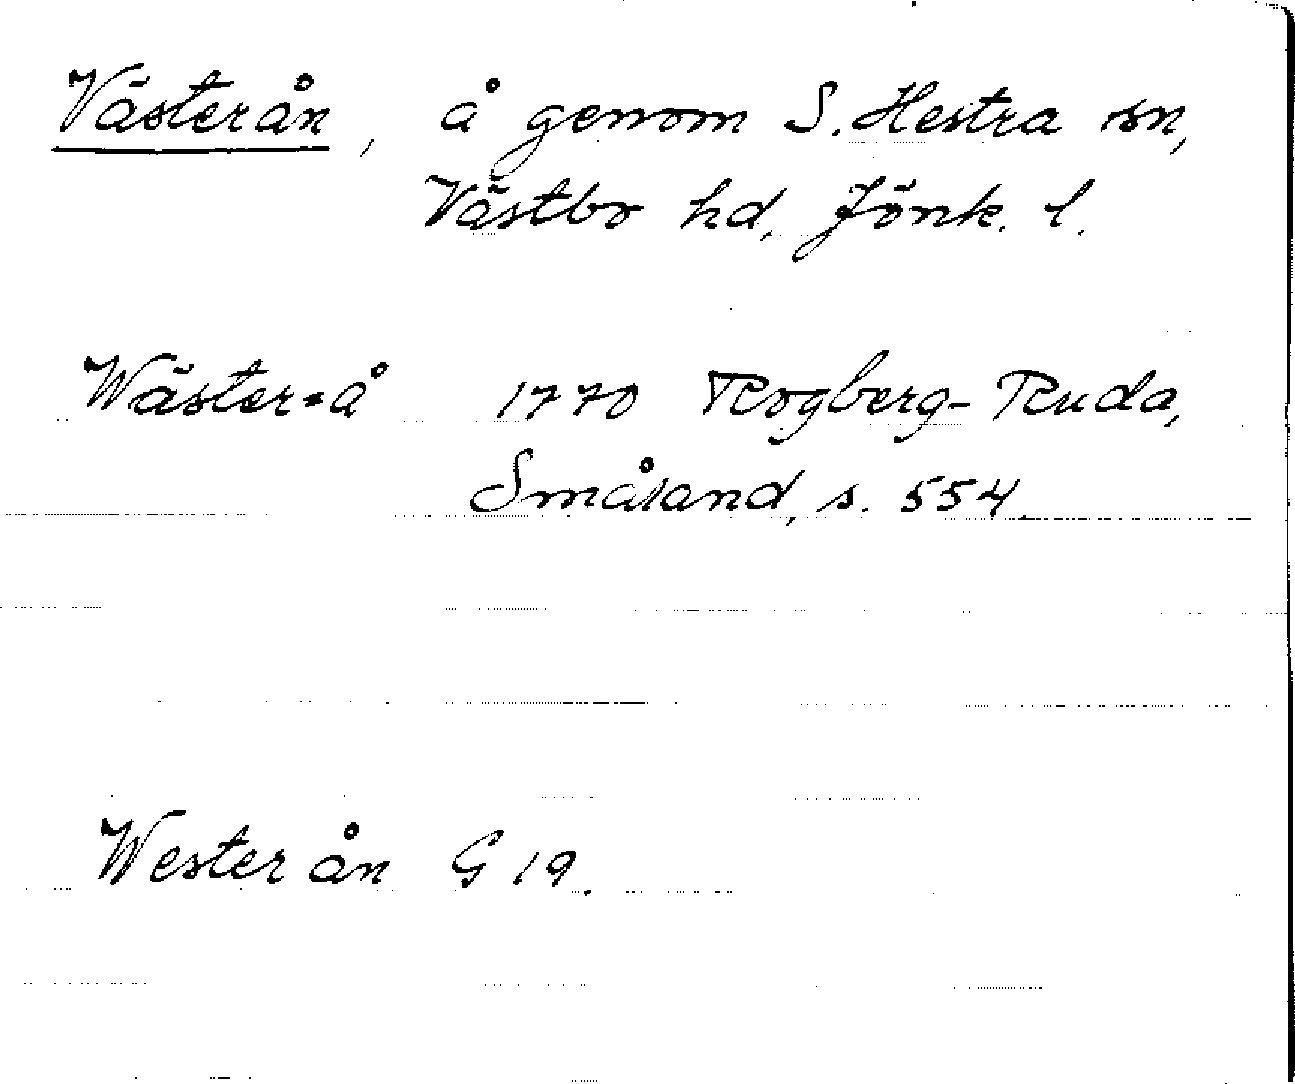 Västerån, å genom S. Hestra sn,
Västbo hd, Jönk. l.
Wäster=å 1770 Rogberg-Ruda,
Småland, s. 554.
Wester ån G 19.